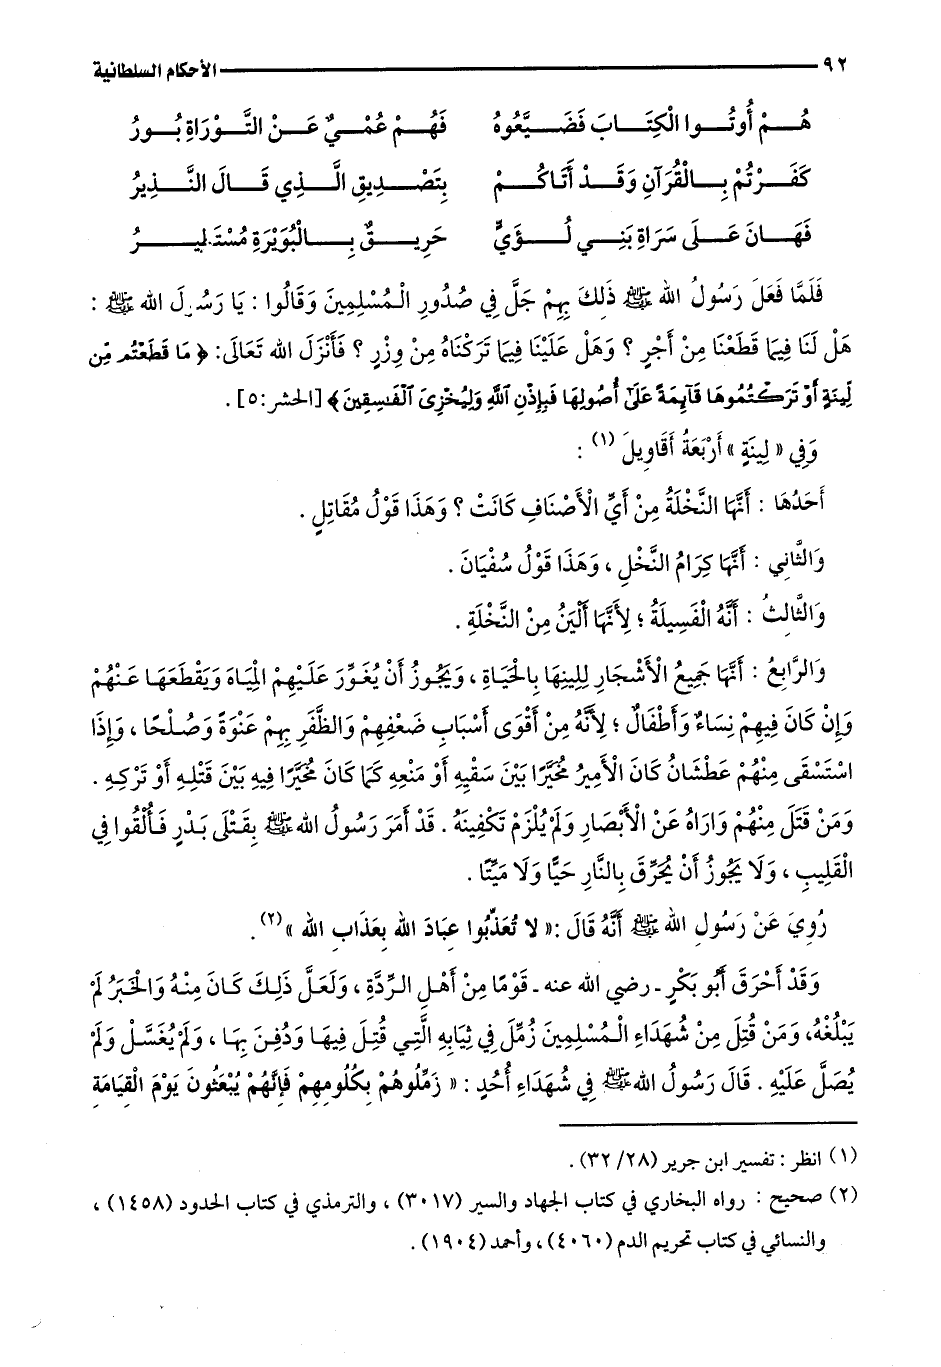 ٩٢ الأحكام السلطانية
هُمْ أُوتُوا الْكِتَابَ فَضَيَّعُوهُ فَهُمْ عُمْيٌ عَنْ التَّوْرَاةِ بُورُ
كَفَرْتُمْ بِالْقُرْآنِ وَقَدْ أَتَاكُمْ بِتَصْدِيقِ الَّذِي قَالَ النَّذِيرُ
فَهَانَ عَلَى سَرَاةِ بَنِي لُؤَيٍّ حَرِيقٌ بِالْبُوَيْرَةِ مُسْتَطِيرُ
فَلَمَّا فَعَلَ رَسُولُ الله ﷺ ذَلِكَ بِهِمْ جَلَّ فِي صُدُورِ الْمُسْلِمِينَ وَقَالُوا : يَا رَسُولَ الله ﷺ :
هَلْ لَنَا فِيمَا قَطَعْنَا مِنْ أَجْرٍ ؟ وَهَلْ عَلَيْنَا فِيمَا تَرَكْنَاهُ مِنْ وِزْرٍ ؟ فَأَنْزَلَ الله تَعَالَى: ﴿ مَا قَطَعْتُم مِّن
لِّينَةٍ أَوْ تَرَكْتُمُوهَا قَآئِمَةً عَلَىٰٓ أُصُولِهَا فَبِإِذْنِ ٱللَّهِ وَلِيُخْزِىَ ٱلْفَـٰسِقِينَ ﴾ [الحشر:٥] .
وَفِي « لِينَةٍ » أَرْبَعَةُ أَقَاوِيلَ (١) :
أَحَدُهَا : أَنَّهَا النَّخْلَةُ مِنْ أَيِّ الْأَصْنَافِ كَانَتْ ؟ وَهَذَا قَوْلُ مُقَاتِلٍ .
وَالثَّانِي : أَنَّهَا كِرَامُ النَّخْلِ ، وَهَذَا قَوْلُ سُفْيَانَ .
وَالثَّالِثُ : أَنَّهُ الْفَسِيلَةُ ؛ لِأَنَّهَا أَلْيَنُ مِنْ النَّخْلَةِ .
وَالرَّابِعُ : أَنَّهَا جَمِيعُ الْأَشْجَارِ لِلِينِهَا بِالْحَيَاةِ ، وَيَجُوزُ أَنْ يُغَوِّرَ عَلَيْهِمْ الْمِيَاهَ وَيَقْطَعَهَا عَنْهُمْ
وَإِنْ كَانَ فِيهِمْ نِسَاءٌ وَأَطْفَالٌ ؛ لِأَنَّهُ مِنْ أَقْوَى أَسْبَابِ ضَعْفِهِمْ وَالظَّفَرِ بِهِمْ عَنْوَةً وَصُلْحًا ، وَإِذَا
اسْتَسْقَى مِنْهُمْ عَطْشَانُ كَانَ الْأَمِيرُ مُخَيَّرًا بَيْنَ سَقْيِهِ أَوْ مَنْعِهِ كَمَا كَانَ مُخَيَّرًا فِيهِ بَيْنَ قَتْلِهِ أَوْ تَرْكِهِ .
وَمَنْ قَتَلَ مِنْهُمْ وَارَاهُ عَنْ الْأَبْصَارِ وَلَمْ يُلْزَمْ تَكْفِينَهُ . قَدْ أَمَرَ رَسُولُ الله ﷺ بِقَتْلَى بَدْرٍ فَأُلْقُوا فِي
الْقَلِيبِ ، وَلَا يَجُوزُ أَنْ يُحَرَّقَ بِالنَّارِ حَيًّا وَلَا مَيِّتًا .
رُوِيَ عَنْ رَسُولِ الله ﷺ أَنَّهُ قَالَ :« لا تُعَذِّبُوا عبَادَ الله بعَذَاب الله » (٢) .
وَقَدْ أَحْرَقَ أَبُو بَكْرٍ ـ رضي الله عنه ـ قَوْمًا مِنْ أَهْلِ الرِّدَّةِ ، وَلَعَلَّ ذَلِكَ كَانَ مِنْهُ وَالْخَبَرُ لَمْ
يَبْلُغْهُ، وَمَنْ قُتِلَ مِنْ شُهَدَاءِ الْمُسْلِمِينَ زُمِّلَ فِي ثِيَابِهِ الَّتِي قُتِلَ فِيهَا وَدُفِنَ بِهَا ، وَلَمْ يُغَسَّلْ وَلَمْ
يُصَلَّ عَلَيْهِ . قَالَ رَسُولُ الله ﷺ فِي شُهَدَاءِ أُحُدٍ : « زَمِّلُوهُمْ بِكُلُومِهِمْ فَإِنَّهُمْ يُبْعَثُونَ يَوْمَ الْقِيَامَةِ
(١) انظر : تفسير ابن جرير (٢٨/ ٣٢) .
(٢) صحيح : رواه البخاري في كتاب الجهاد والسير (٣٠١٧) ، والترمذي في كتاب الحدود (١٤٥٨) ،
والنسائي في كتاب تحريم الدم (٤٠٦٠) ، وأحمد (١٩٠٤) .